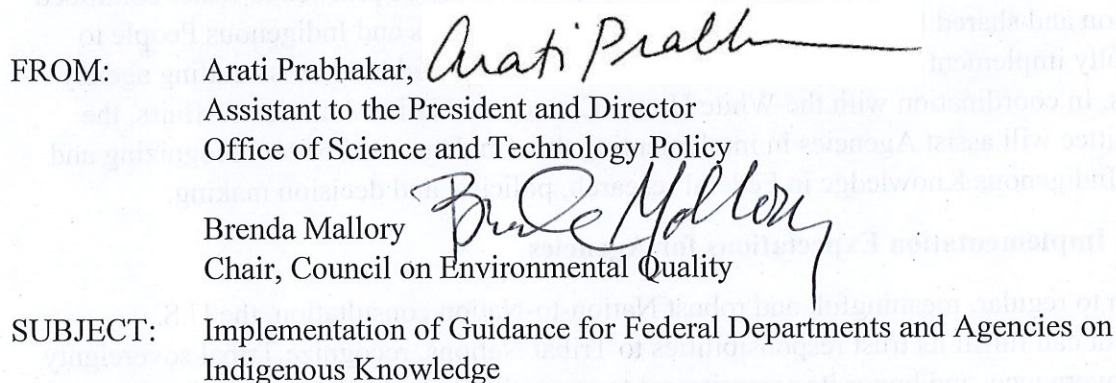 FROM: Arati Prabhakar, Arati Prabh
Assistant to the President and Director
Office of Science and Technology Policy
Brenda Mallory Brenda Mallory
Chair, Council on Environmental Quality
SUBJECT: Implementation of Guidance for Federal Departments and Agencies on
Indigenous Knowledge